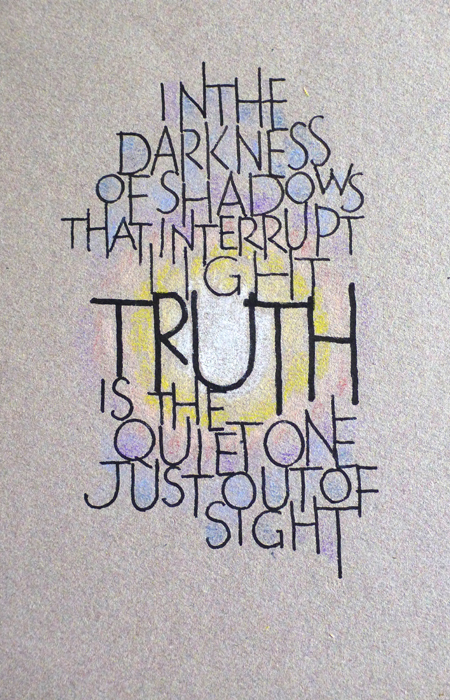 IN THE
DARKNESS
OF SHADOWS
THAT INTERRUPT
LIGHT
TRUTH
IS THE
QUIET ONE
JUST OUT OF
SIGHT